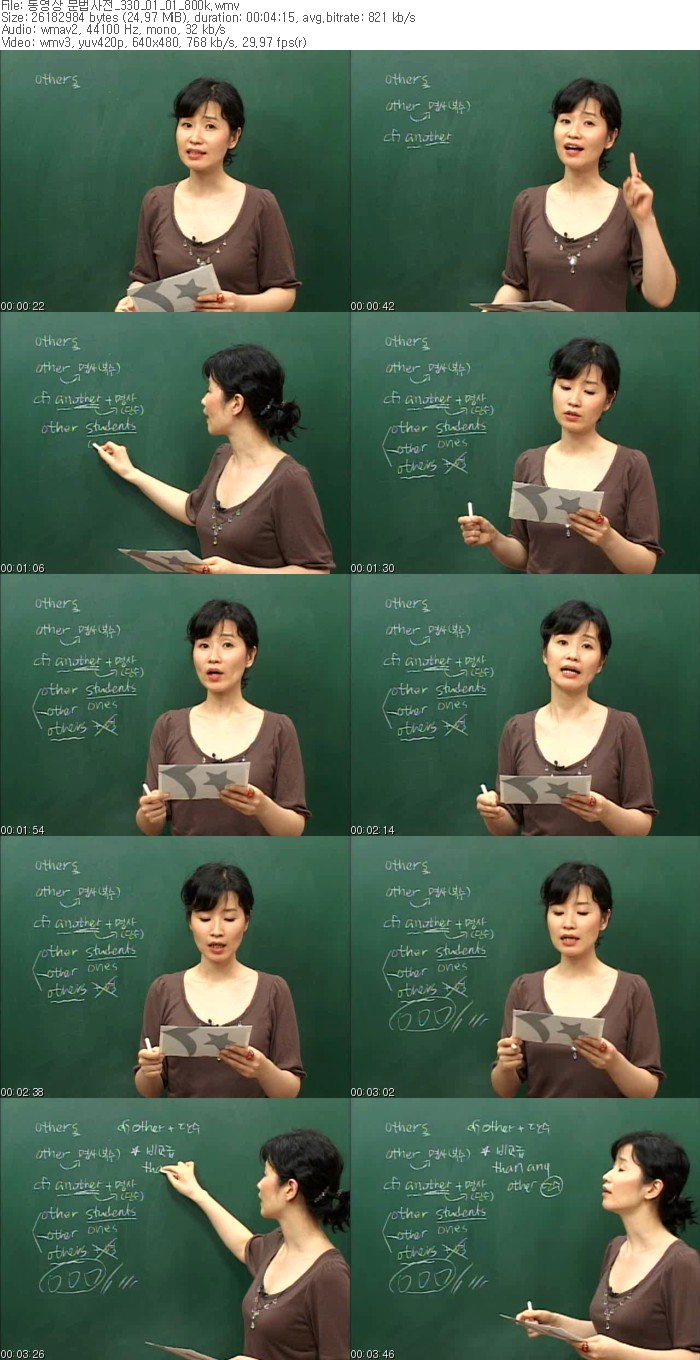 File: 동영상 문법사전_330_01_01_800k.wmv
Size: 26182984 bytes (24.97 MiB), duration: 00:04:15, avg.bitrate: 821 kb/s
Audio: wmav2, 44100 Hz, mono, 32 kb/s
Video: wmv3, yuv420p, 640x480, 768 kb/s, 29.97 fps(r)
others
00:00:22
others
other 명사(복수)
cf) another
00:00:42
others
other 명사(복수)
cf) another + 명사
(단수)
other students
00:01:06
others
other 명사(복수)
cf) another + 명사
(단수)
other students
other ones
others
00:01:30
others
other 명사(복수)
cf) another + 명사
(단수)
other students
other ones
others
00:01:54
others
other 명사(복수)
cf) another + 명사
(단수)
other students
other ones
others
00:02:14
others
other 명사(복수)
cf) another + 명사
(단수)
other students
other ones
others
00:02:38
others
other 명사(복수)
cf) another + 명사
(단수)
other students
other ones
others
00:03:02
others
cf) other + 단수
other 명사(복수)
* 비교급
tha
cf) another + 명사
(단수)
other students
other ones
others
00:03:26
others
cf) other + 단수
other 명사(복수)
* 비교급
than any
other 단수
cf) another + 명사
(단수)
other students
other ones
others
00:03:46